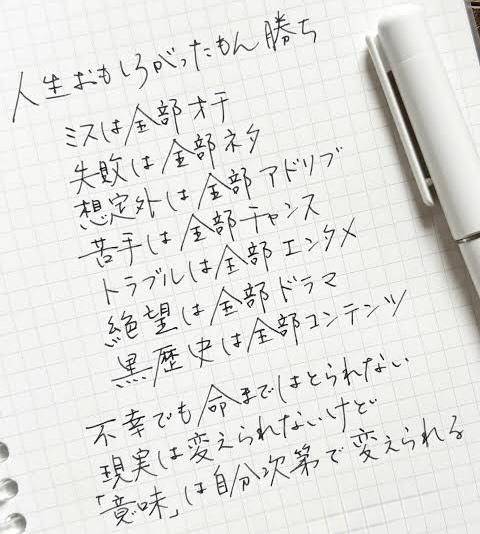 人生おもしろがったもん勝ち
ミスは全部オチ
失敗は全部ネタ
想定外は全部アドリブ
苦手は全部チャンス
トラブルは全部エンタメ
絶望は全部ドラマ
黒歴史は全部コンテンツ
不幸でも命まではとられない
現実は変えられないけど
「意味」は自分次第で変えられる